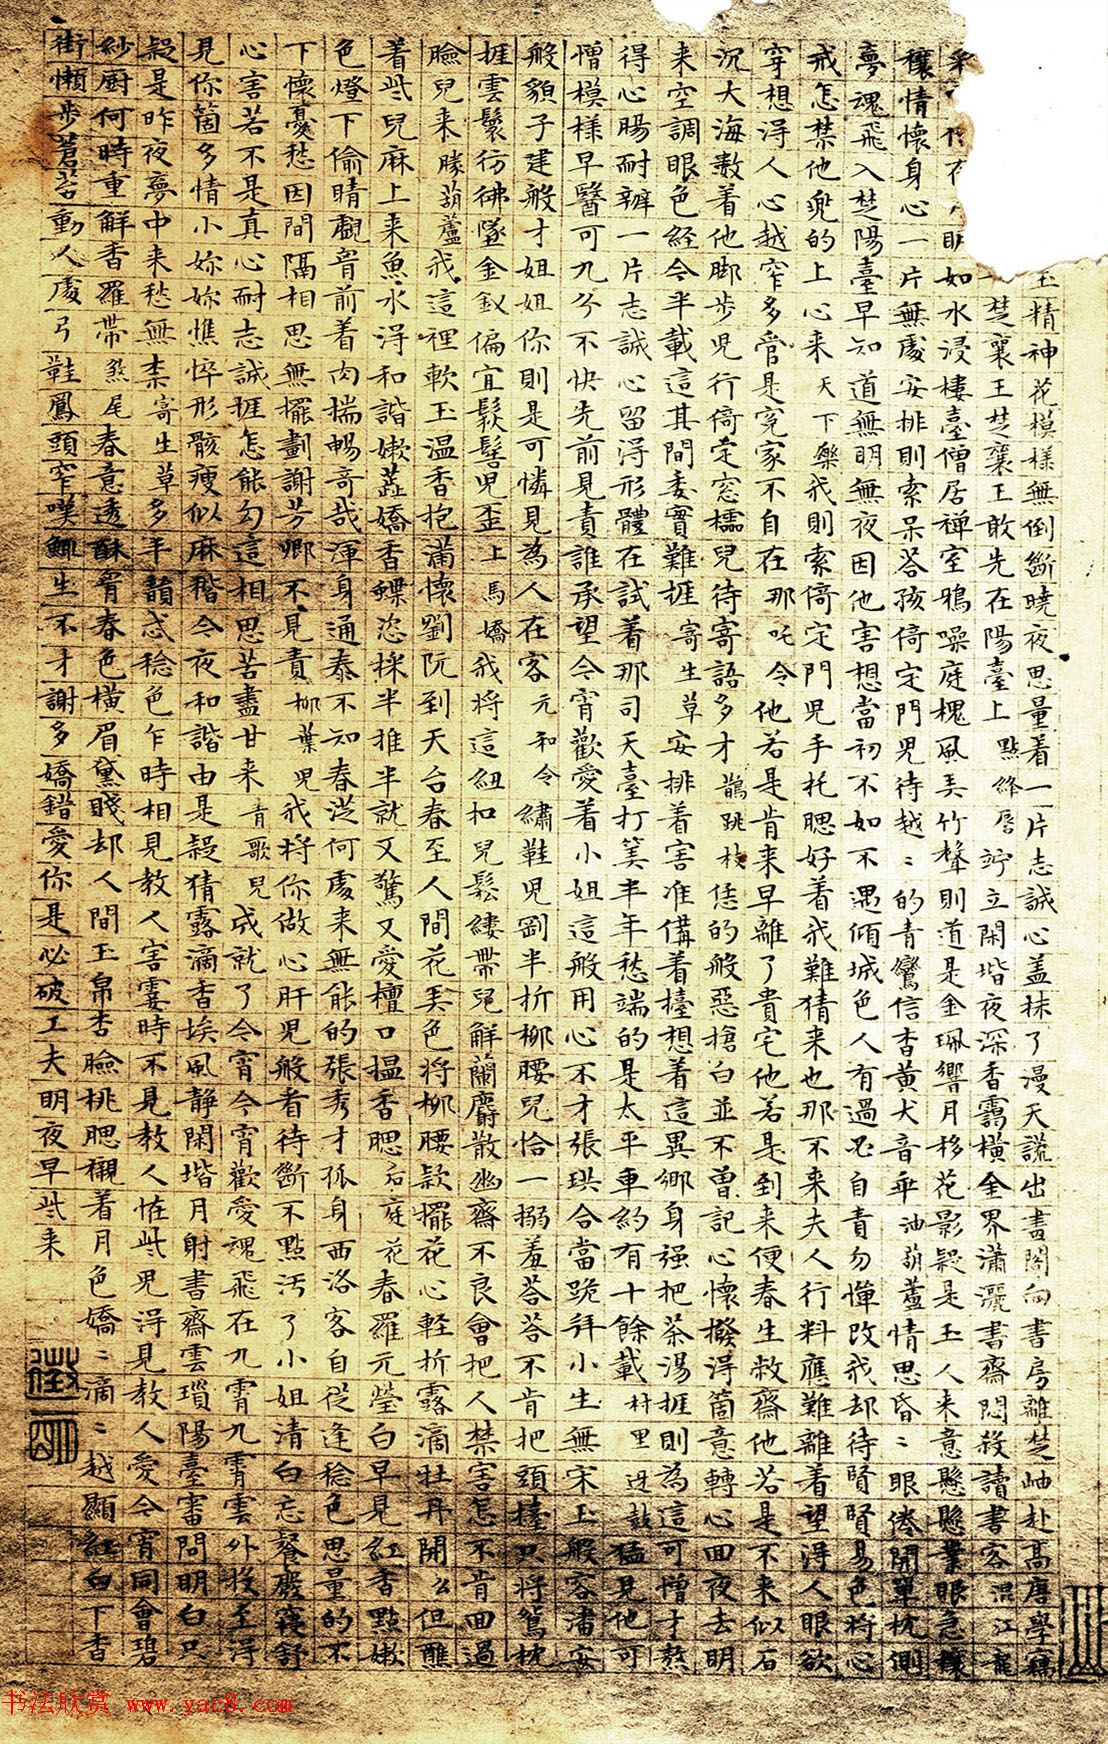 玉精神花模樣無倒斷曉夜思量着一片志誠心盖抹了漫天謊出畫閣向書房離楚岫赴高唐學竊
楚襄王楚襄王敢先在陽臺上點絳唇竚立閑堦夜深香靄橫金界瀟灑書齋悶殺讀書客混江龍
明如水浸樓臺僧居禪室鴉噪庭槐風弄竹聲則道是金珮響月移花影疑是玉人来意懸懸業眼急穰
穰情懷身心一片無處安排則索呆荅孩倚定門兒待越〻的青鸞信杳黃犬音乖油葫蘆情思昏〻眼倦開單枕側
夢魂飛入楚陽臺早知道無明無夜因他害想當初不如不遇傾城色人有過必自責勿憚改我却待賢賢易色將心
戒怎禁他兜的上心来天下樂我則索倚定門兒手托腮好着我難猜来也那不来夫人行料應難離着望得人眼欲
穿想得人心越窄多管是寃家不自在那吒令他若是肯来早離了貴宅他若是到来便春生敝齋他若是不来似石
沉大海數着他脚步兒行倚定窓櫺兒待寄語多才鵲踏枝恁的般惡搶白並不曾記心懷撥得箇意轉心回夜去明
来空調眼色經今半載這其間委實難捱寄生草安排着害准備着擡想着這異鄉身强把茶湯捱則為這可憎才熬
得心腸耐辦一片志誠心留得形體在試着那司天臺打筭半年愁端的是太平車約有十餘載村里迓鼓猛見他可
憎模樣早醫可九分不快先前見責誰承望今宵歡愛着小姐這般用心不才張珙合當跪拜小生無宋玉般容潘安
般貌子建般才姐姐你則是可憐見為人在客元和令繡鞋兒剛半折柳腰兒恰一搦羞荅荅不肯把頭擡只將鴛枕
捱雲鬟彷彿墜金釵偏宜鬏髻兒歪上馬嬌我將這紐扣兒鬆縷帶兒解蘭麝散幽齋不良會把人禁害怎不肯回過
臉兒来勝葫蘆我這裡軟玉温香抱滿懷劉阮到天台春至人間花弄色將柳腰款擺花心輕折露滴牡丹開么但蘸
着些兒麻上来魚水得和諧嫩蕋嬌香蝶恣採半推半就又驚又愛檀口揾香腮后庭花春羅元瑩白早見紅香點嫩
色燈下偷睛覷胷前着肉揣暢奇哉渾身通泰不知春從何處来無能的張秀才孤身西洛客自從逢稔色思量的不
下懷憂愁因間隔相思無擺劃謝芳卿不見責柳葉兒我將你做心肝兒般看待斷不點汚了小姐清白忘餐廢寢舒
心害若不是真心耐志誠捱怎能勾這相思苦盡甘来青歌兒成就了今宵今宵歡愛魂飛在九霄九霄雲外投至得
見你箇多情小妳妳憔悴形骸瘦似麻稭今夜和諧由是疑猜露滴香埃風靜閑堦月射書齋雲瑣陽臺審問明白只
疑是昨夜夢中来愁無柰寄生草多丰韻忒稔色乍時相見教人害霎時不見教人恠些兒得見教人愛今宵同會碧
紗厨何時重解香羅帶煞尾春意透酥胷春色橫眉黛賤却人間玉帛杏臉桃腮襯着月色嬌〻滴〻越顯紅白下香
街懶步蒼苔動人處弓鞋鳳頭窄嘆鯫生不才謝多嬌錯愛你是必破工夫明夜早些来
徵明
书法欣赏 www.yac8.com